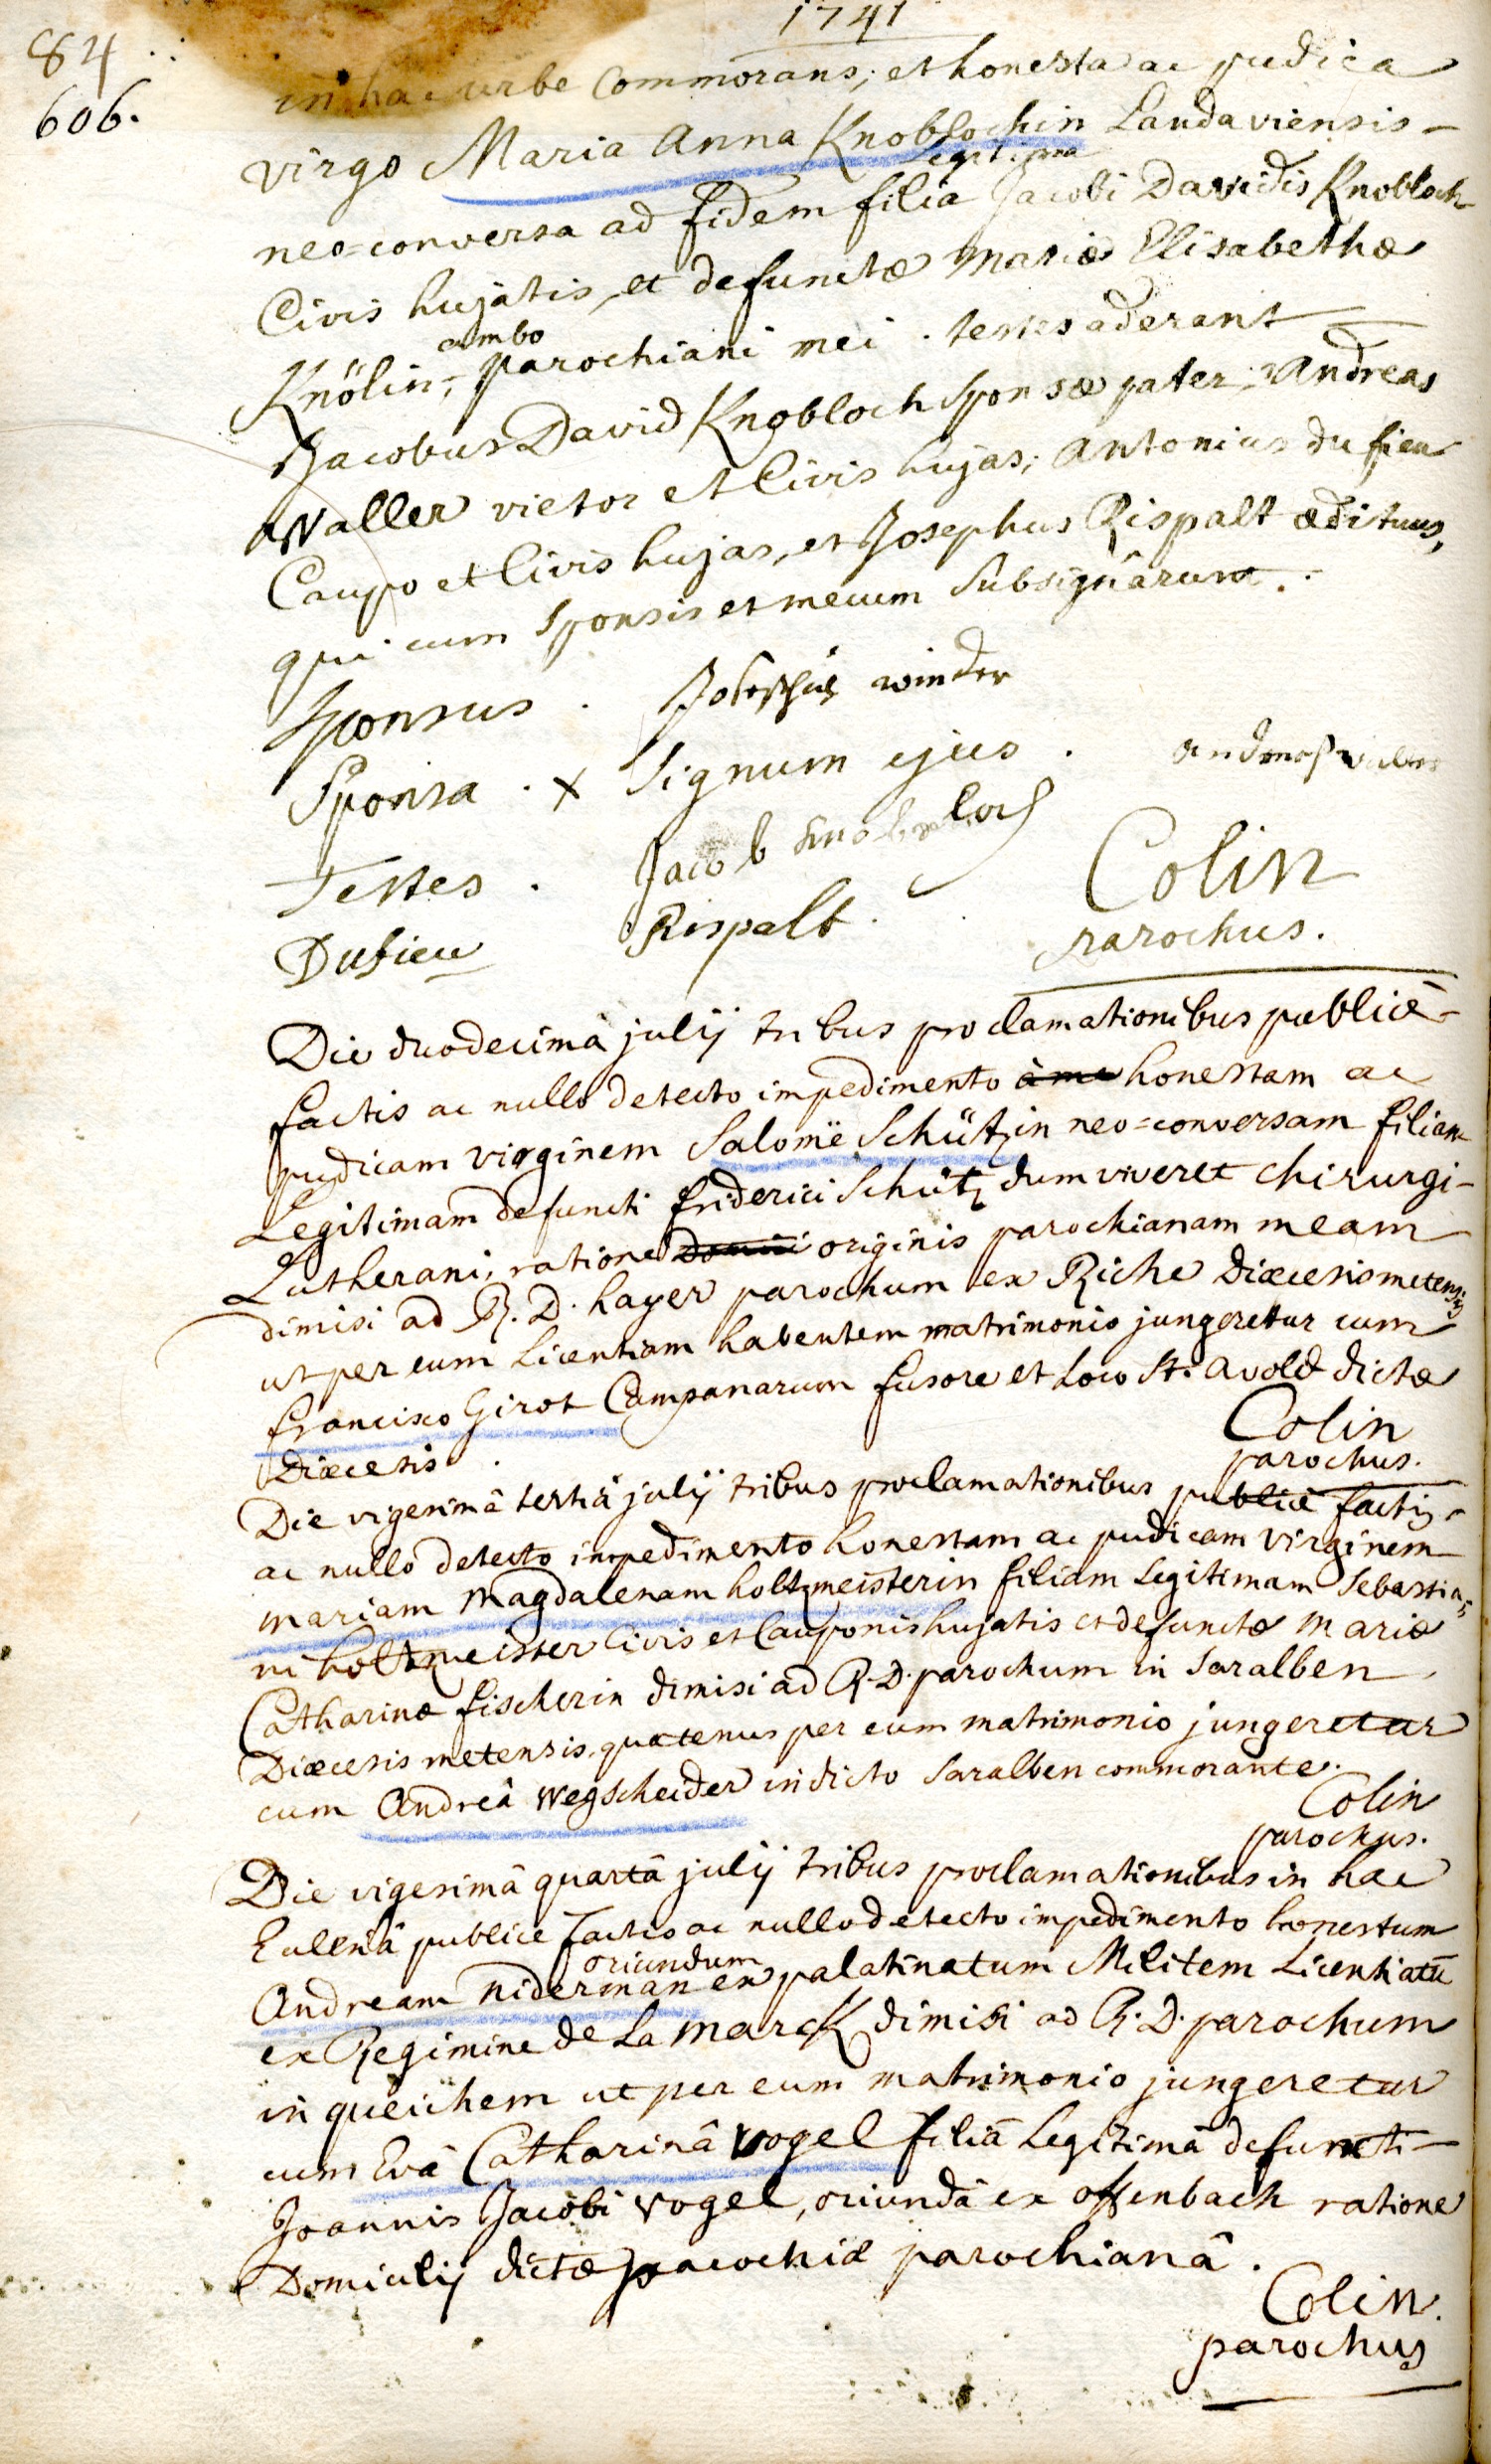 1741
84
606.
in hac urbe commorans; et honesta ac pudica
virgo Maria Anna Knoblochin Landaviensis -
neo=conversa ad fidem filia Legitima Jacobi Davidis Knobloch
Civis hujatis, et defunctæ Mariæ Elisabethæ
Knölin, ambo parochiani mei . testes aderant
Jacobus David Knobloch sponsæ pater, Andreas
Waller vietor et Civis hujas; Antonius du fieu
Caupo et Civis hujas, et Josephus Rispalt ædituus,
qui cum sponsis et mecum subsignârunt.
Sponsus . Josephus winder
Sponsa . x Signum ejus . andreas waller
Testes . Jacob knobloch
Colin
Dufieu Rispalt . parochus.
Die duodecimâ julij tribus proclamationibus publicè
factis ac nullo detecto impedimento à me honestam ac
pudicam virginem Salomë Schützin neo=conversam filiam
Legitimam defuncti friderici Schütz dum viveret Chirurgi -
Lutherani, ratione originis parochianam meam
dimisi ad R. D. hayer parochum ex Riche diæcesis metensis
ut per eum Licentiam habentem matrimonio jungeretur cum
francisco Girot Campanarum fusore et Loco St. Avold dictæ
Diæcesis . Colin
parochus.
Die vigesimâ tertiâ julij tribus proclamationibus publicè factis
ac nullo detecto impedimento honestam ac pudicam virginem
mariam Magdalenam holtzmeisterin filiam Legitimam Sebastia=
ni holtzmeister Civis et Cauponis hujatis et defunctæ Mariæ
Catharinæ fischerin dimisi ad R. D. parochum in Saralben
Diæcesis metensis, quatenus per eum matrimonio jungeretur
cum Andreâ Wegscheider in dicto Saralben commorante.
Colin
parochus.
Die vigesimâ quartâ julij tribus proclamationibus in hac
Eccl̃esiâ publice factis ac nullo detecto impedimento honestum
Andream Niderman oriundum ex palatinatum Militem Licentiatũ
ex Regimine de La Marck dimisi ad R. D. parochum
in queichem ut per eum matrimonio jungeretur
cum Evâ Catharinâ Vogel filiâ Legitimâ defuncti -
Joannis Jacobi Vogel, oriundâ ex offenbach ratione
Domicilij dictæ parochiæ parochianâ .
Colin.
parochus